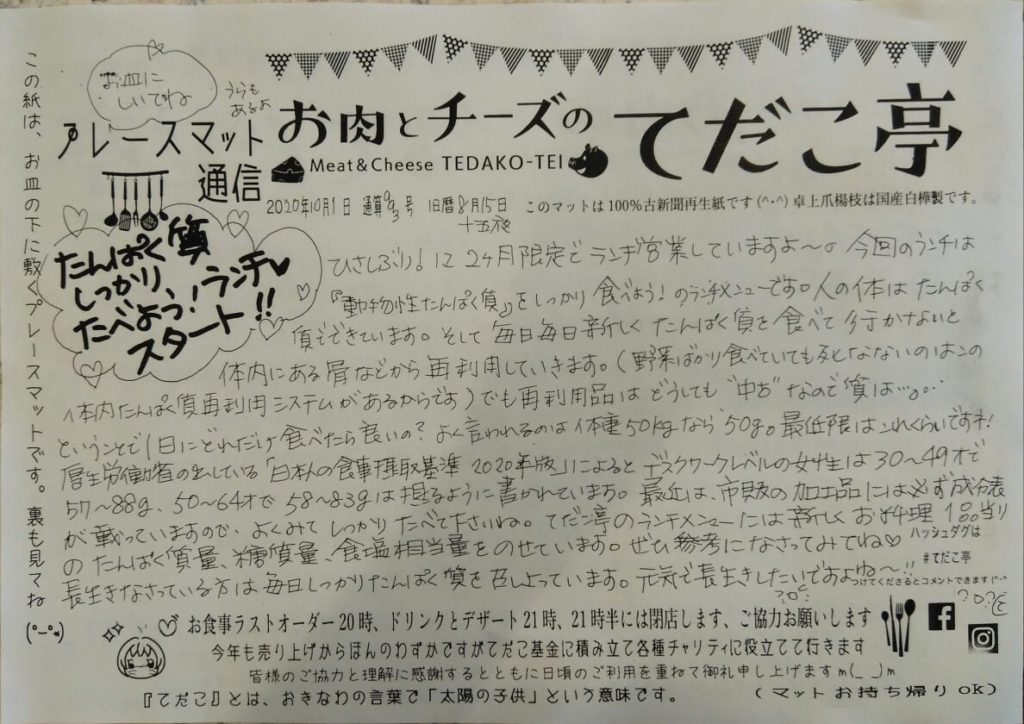 お皿に
しいてね
うらも
あるよ
プレースマット
通信
お肉とチーズの
てだこ亭
Meat&Cheese TEDAKO-TEI
2020年10月1日 通算93号 旧暦8月15日
十五夜
このマットは100%古新聞再生紙です(^・^)卓上爪楊枝は国産白樺製です。
この紙は、お皿の下に敷くプレースマットです。裏も見てね
(°ー°*)
たんぱく質
しっかり、
たべよっ!ランチ♥
スタート!!
ひさしぶり!に2ヶ月限定でランチ営業していますよ〜♂ 今回のランチは
『動物性たんぱく質』をしっかり食べよう!のランチメニューです。人の体はたんぱく
質でできています。そして毎日毎日新しくたんぱく質を食べて行かないと
体内にある屑などから再利用していきます。(野菜ばかり食べていても死なないのはこの
体内たんぱく質再利用システムがあるからです)でも再利用品はどうしても"中古"なので質は…。
ということで1日にどれだけ食べたら良いの?よく言われるのは体重50kgなら50g。最低限はこれくらいですネ!
厚生労働省の出している「日本人の食事摂取基準2020年版」によるとデスクワークレベルの女性は30〜49才で
57〜88g、50〜64才で58〜83gは摂るように書かれています。最近は、市販の加工品には必ず成分表
が載っていますので、よくみてしっかりたべて下さいね。てだこ亭のランチメニューには新しくお料理1品当り
のたんぱく質量、糖質量、食塩相当量をのせています。ぜひ参考になさってみてね♡
長生きなさっている方は毎日しっかりたんぱく質を召し上っています。元気で長生きしたいですよね〜!!
ハッシュタグは
#てだこ亭
つけてくださるとコメントできます(^-^
お食事ラストオーダー20時、ドリンクとデザート21時、21時半には閉店します、ご協力お願いします
今年も売り上げからほんのわずかですがてだこ基金に積み立て各種チャリティに役立てて行きます
皆様のご協力と理解に感謝するとともに日頃のご利用を重ねて御礼申し上げますm(__)m
『てだこ』とは、おきなわの言葉で「太陽の子供」という意味です。
(マットお持ち帰りOK)